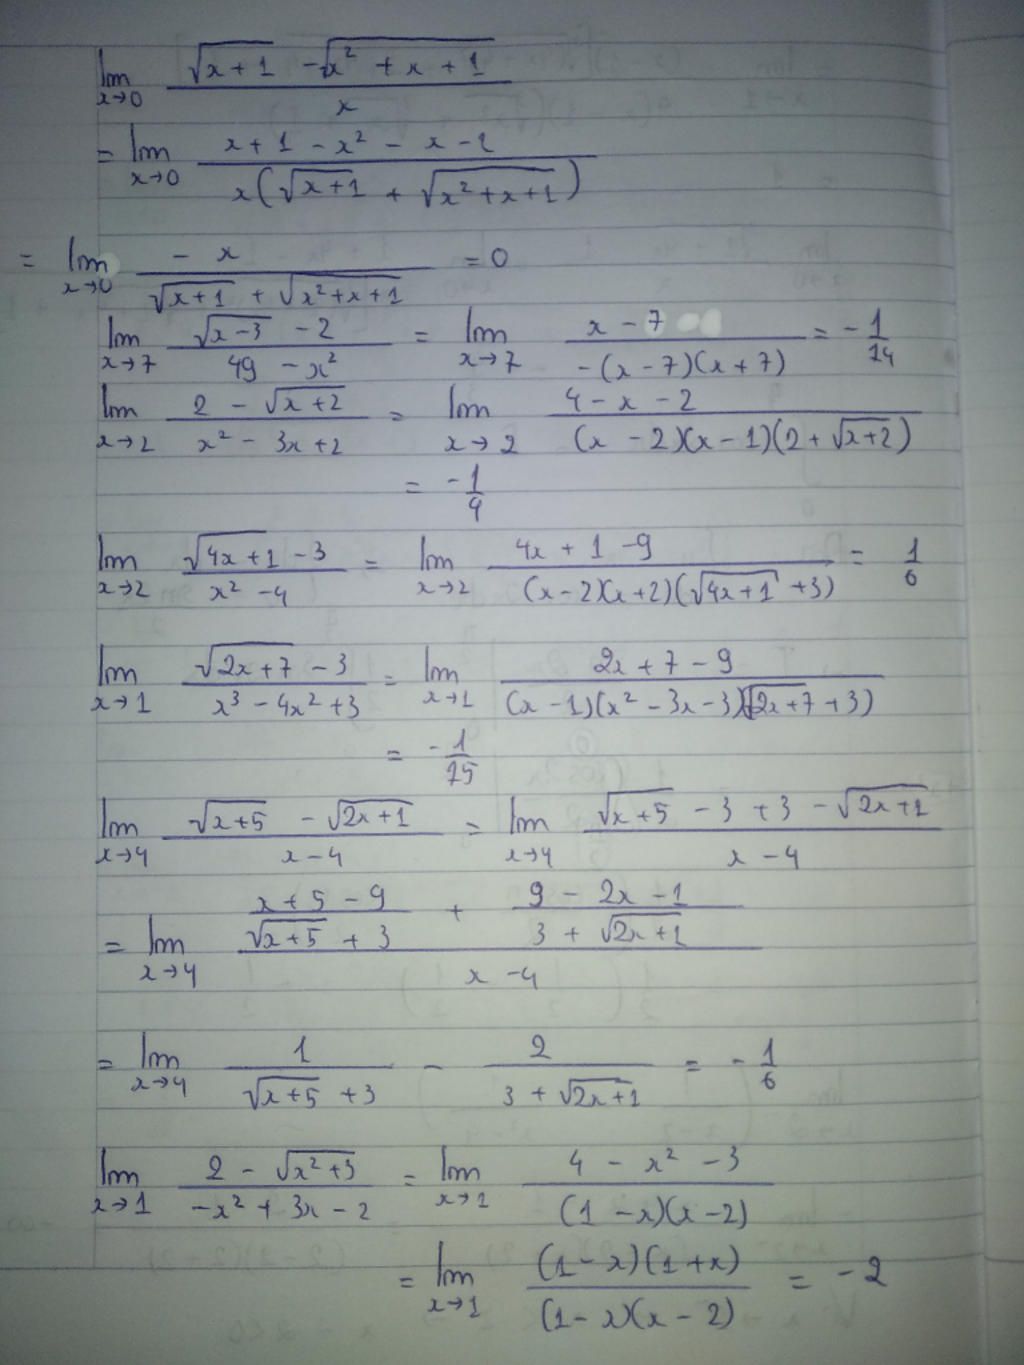 lim x→0 (√(x+1) - √(x² + x + 1)) / x
= lim x→0 (x + 1 - x² - x - 1) / (x(√(x+1) + √(x²+x+1)))
= lim x→0 (- x) / (√(x+1) + √(x²+x+1)) = 0
lim x→7 (√(x-3) - 2) / (49 - x²) = lim x→7 (x - 7) / (-(x - 7)(x + 7)) = - 1/14
lim x→2 (2 - √(x+2)) / (x² - 3x + 2) = lim x→2 (4 - x - 2) / ((x - 2)(x - 1)(2 + √(x+2)))
= - 1/4
lim x→2 (√(4x+1) - 3) / (x² - 4) = lim x→2 (4x + 1 - 9) / ((x - 2)(x + 2)(√(4x+1) + 3)) = 1/6
lim x→1 (√(2x+7) - 3) / (x³ - 4x² + 3) = lim x→1 (2x + 7 - 9) / ((x - 1)(x² - 3x - 3)(√(2x+7) + 3))
= - 1/15
lim x→4 (√(x+5) - √(2x+1)) / (x - 4) = lim x→4 (√(x+5) - 3 + 3 - √(2x+1)) / (x - 4)
= lim x→4 ((x + 5 - 9)/(√(x+5) + 3) + (9 - 2x - 1)/(3 + √(2x+1))) / (x - 4)
= lim x→4 1/(√(x+5) + 3) - 2/(3 + √(2x+1)) = - 1/6
lim x→1 (2 - √(x²+3)) / (-x² + 3x - 2) = lim x→1 (4 - x² - 3) / ((1 - x)(x - 2))
= lim x→1 ((1 - x)(1 + x)) / ((1 - x)(x - 2)) = - 2